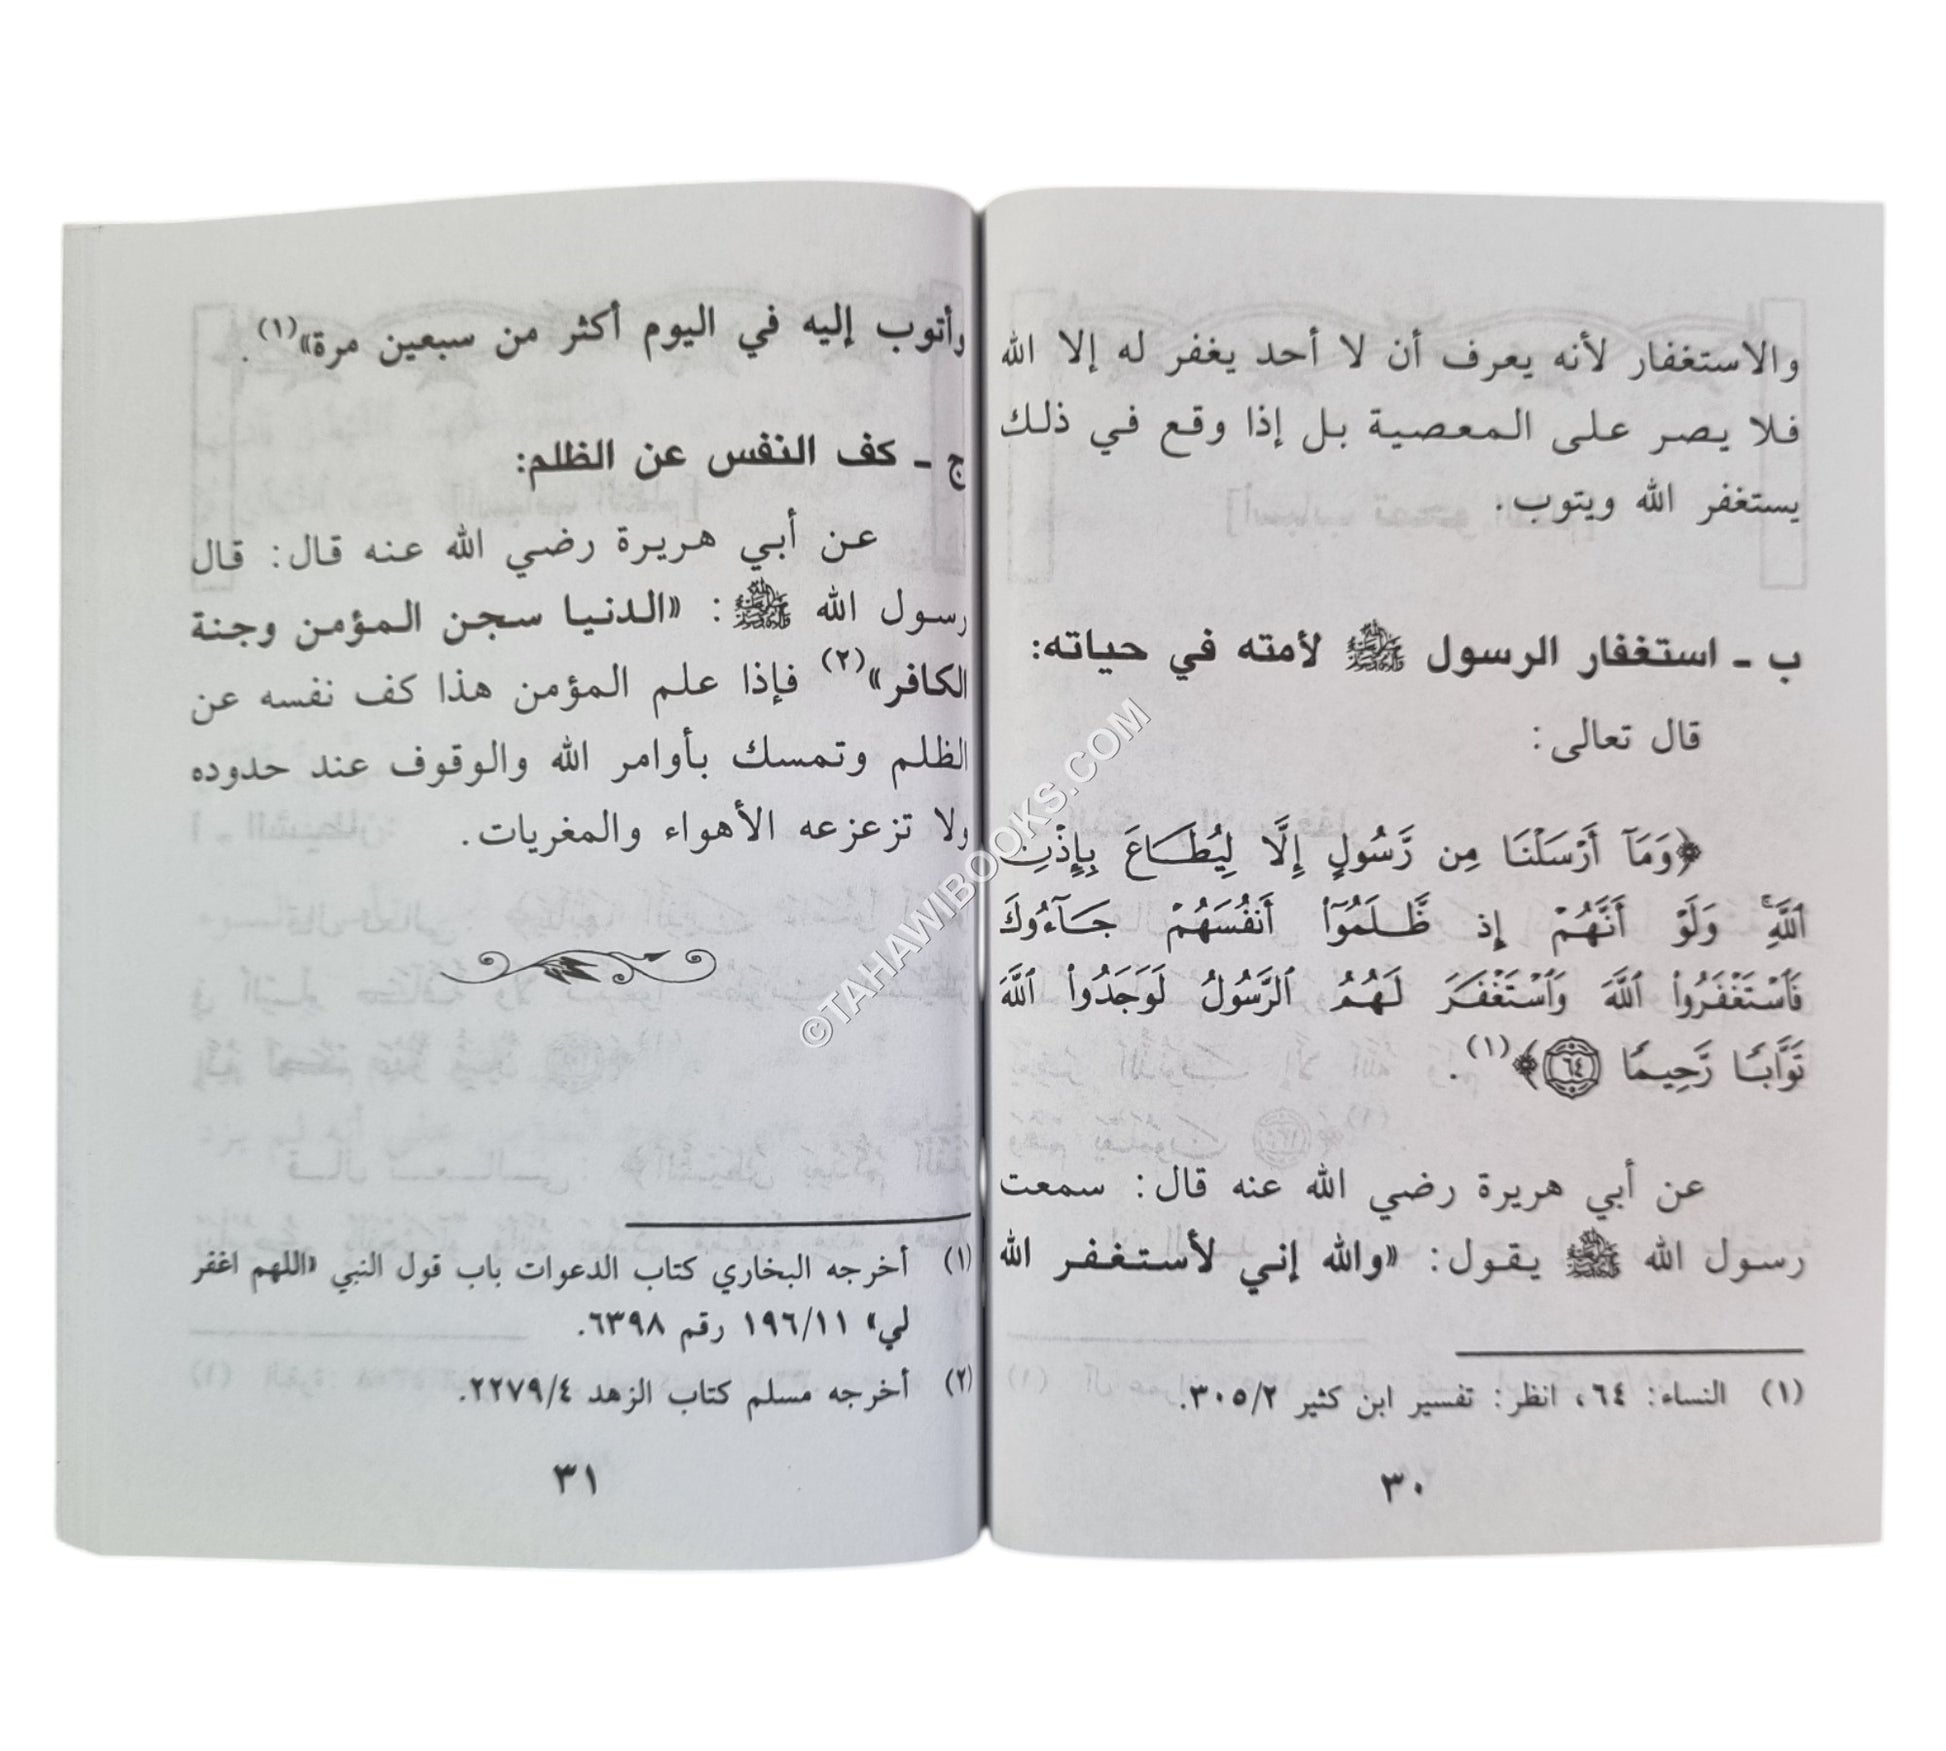 والاستغفار لأنه يعرف أن لا أحد يغفر له إلا الله
فلا يصر على المعصية بل إذا وقع في ذلك
يستغفر الله ويتوب.
ب - استغفار الرسول ﷺ لأمته في حياته:
قال تعالى:
﴿وَمَآ أَرْسَلْنَا مِن رَّسُولٍ إِلَّا لِيُطَاعَ بِإِذْنِ
ٱللَّهِ ۚ وَلَوْ أَنَّهُمْ إِذ ظَّلَمُوٓا۟ أَنفُسَهُمْ جَآءُوكَ
فَٱسْتَغْفَرُوا۟ ٱللَّهَ وَٱسْتَغْفَرَ لَهُمُ ٱلرَّسُولُ لَوَجَدُوا۟ ٱللَّهَ
تَوَّابًا رَّحِيمًا ٦٤﴾(١).
عن أبي هريرة رضي الله عنه قال: سمعت
رسول الله ﷺ يقول: «والله إني لأستغفر الله
(١) النساء: ٦٤، انظر: تفسير ابن كثير ٣٠٥/٢.
٣٠
وأتوب إليه في اليوم أكثر من سبعين مرة»(١).
ج - كف النفس عن الظلم:
عن أبي هريرة رضي الله عنه قال: قال
رسول الله ﷺ: «الدنيا سجن المؤمن وجنة
الكافر»(٢) فإذا علم المؤمن هذا كف نفسه عن
الظلم وتمسك بأوامر الله والوقوف عند حدوده
ولا تزعزعه الأهواء والمغريات.
(١) أخرجه البخاري كتاب الدعوات باب قول النبي «اللهم اغفر
لي» ١٩٦/١١ رقم ٦٣٩٨.
(٢) أخرجه مسلم كتاب الزهد ٢٢٧٩/٤.
٣١
©TAHAWIBOOKS.COM